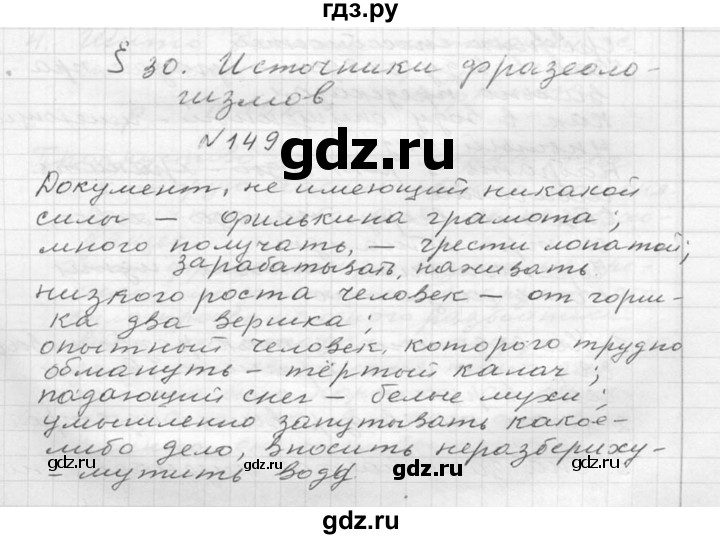 гдз.ру
§ 30. Источники фразеоло-
гизмов
№149
gdz.ru
Документ, не имеющий никакой
силы – филькина грамота;
много получать, – грести лопатой;
зарабатывать, наживать.
низкого роста человек – от горш-
ка два вершка;
опытный человек, которого трудно
обмануть – тёртый калач;
падающий снег – белые мухи;
умышленно запутывать какое-
либо дело, вносить неразбериху –
– мутить воду.
gdz.ru gdz.ru gdz.ru
gdz.ru